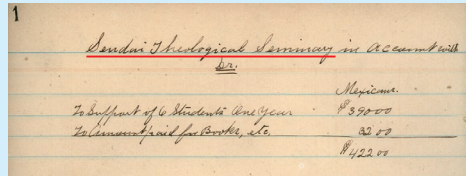 1
Sendai Theological Seminary in Account with
Dr.
Mexicans.
To Support of 6 Students One Year $390 00
To Amount paid for Books, etc. 32 00
$422 00